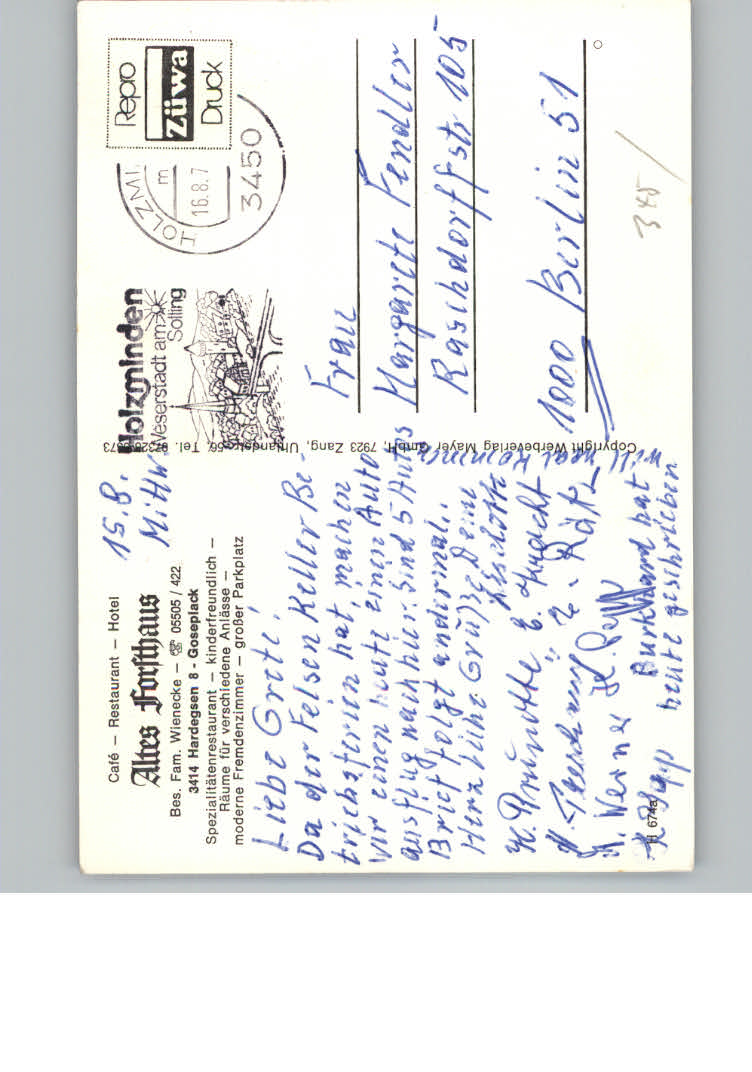 Café – Restaurant – Hotel
Altes Forsthaus
Bes. Fam. Wienecke – ☎ 05505 / 422
3414 Hardegsen 8 - Goseplack
Spezialitätenrestaurant – kinderfreundlich –
Räume für verschiedene Anlässe –
moderne Fremdenzimmer – großer Parkplatz
15.8.
Mittw.
Liebe Grete!
Da der Felsenkeller Be-
triebsferien hat, machen
wir einen heute einen Auto
ausflug nach hier. Sind 5 Autos
Brief folgt andermal.
Herzliche Grüße Deine
Liselotte
will mal kommen
H. Werner
Burkhard hat
heute geschrieben
H 674a
Copyright Werbeverlag Mayer GmbH, 7923 Zang, Uhlandstr. 56, Tel.
Holzminden
Weserstadt am
Solling
HOLZMI
m
16.8.7
3450
Repro
Züwa
Druck
Frau
Margarete Fendler
Raschdorffstr 105
1000 Berlin 51
345